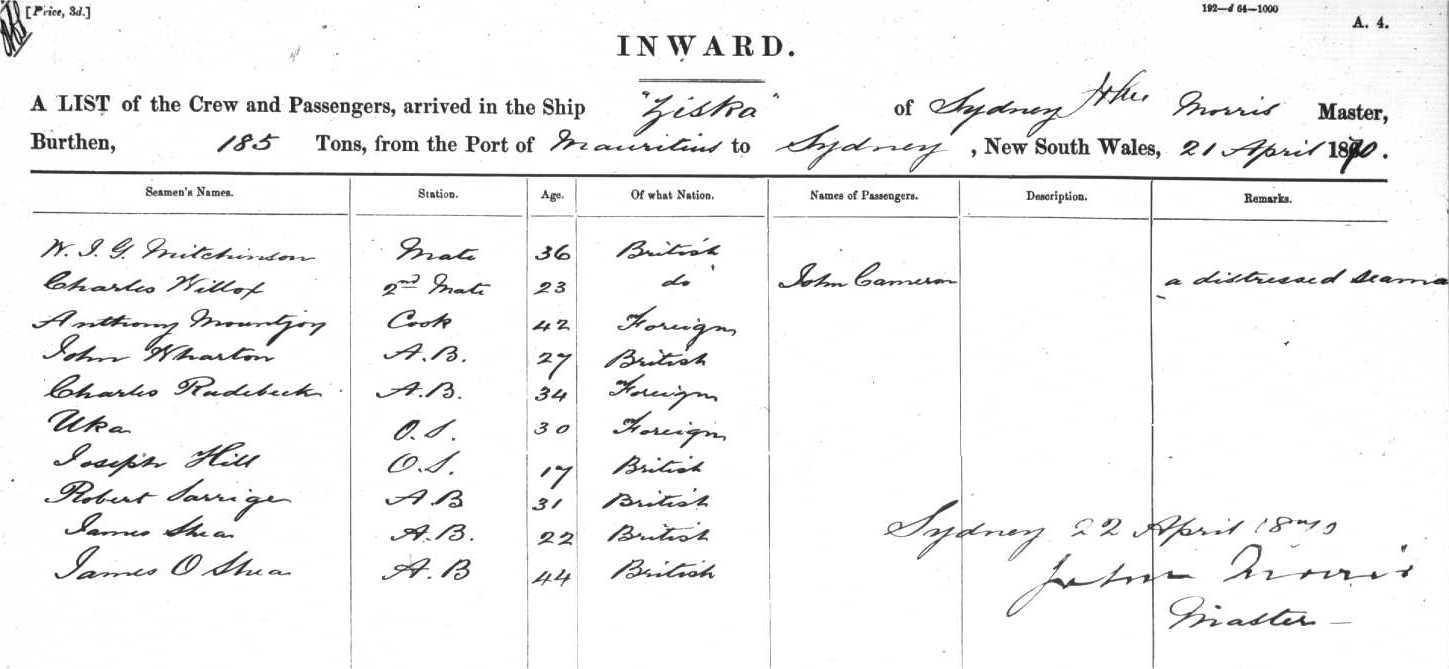 [Price, 3d.]
192—d 64—1000
A. 4.
INWARD.
A LIST of the Crew and Passengers, arrived in the Ship "Ziska" of Sydney John Morris Master,
Burthen, 185 Tons, from the Port of Mauritius to Sydney, New South Wales, 21 April 1870.
Seamen's Names. Station. Age. Of what Nation. Names of Passengers. Description. Remarks.
W. J. G. Mitchinson Mate 36 British
Charles Willox 2nd Mate 23 do John Cameron a distressed seama
Anthony Mountjoy Cook 42 Foreign
John Wharton A.B. 27 British
Charles Radebeck A.B. 34 Foreign
Uka O.S. 30 Foreign
Joseph Hill O.S. 17 British
Robert A.B 31 British
James Shea A.B. 22 British
James O Shea A.B 44 British
Sydney 22 April 1870
John Morris
Master